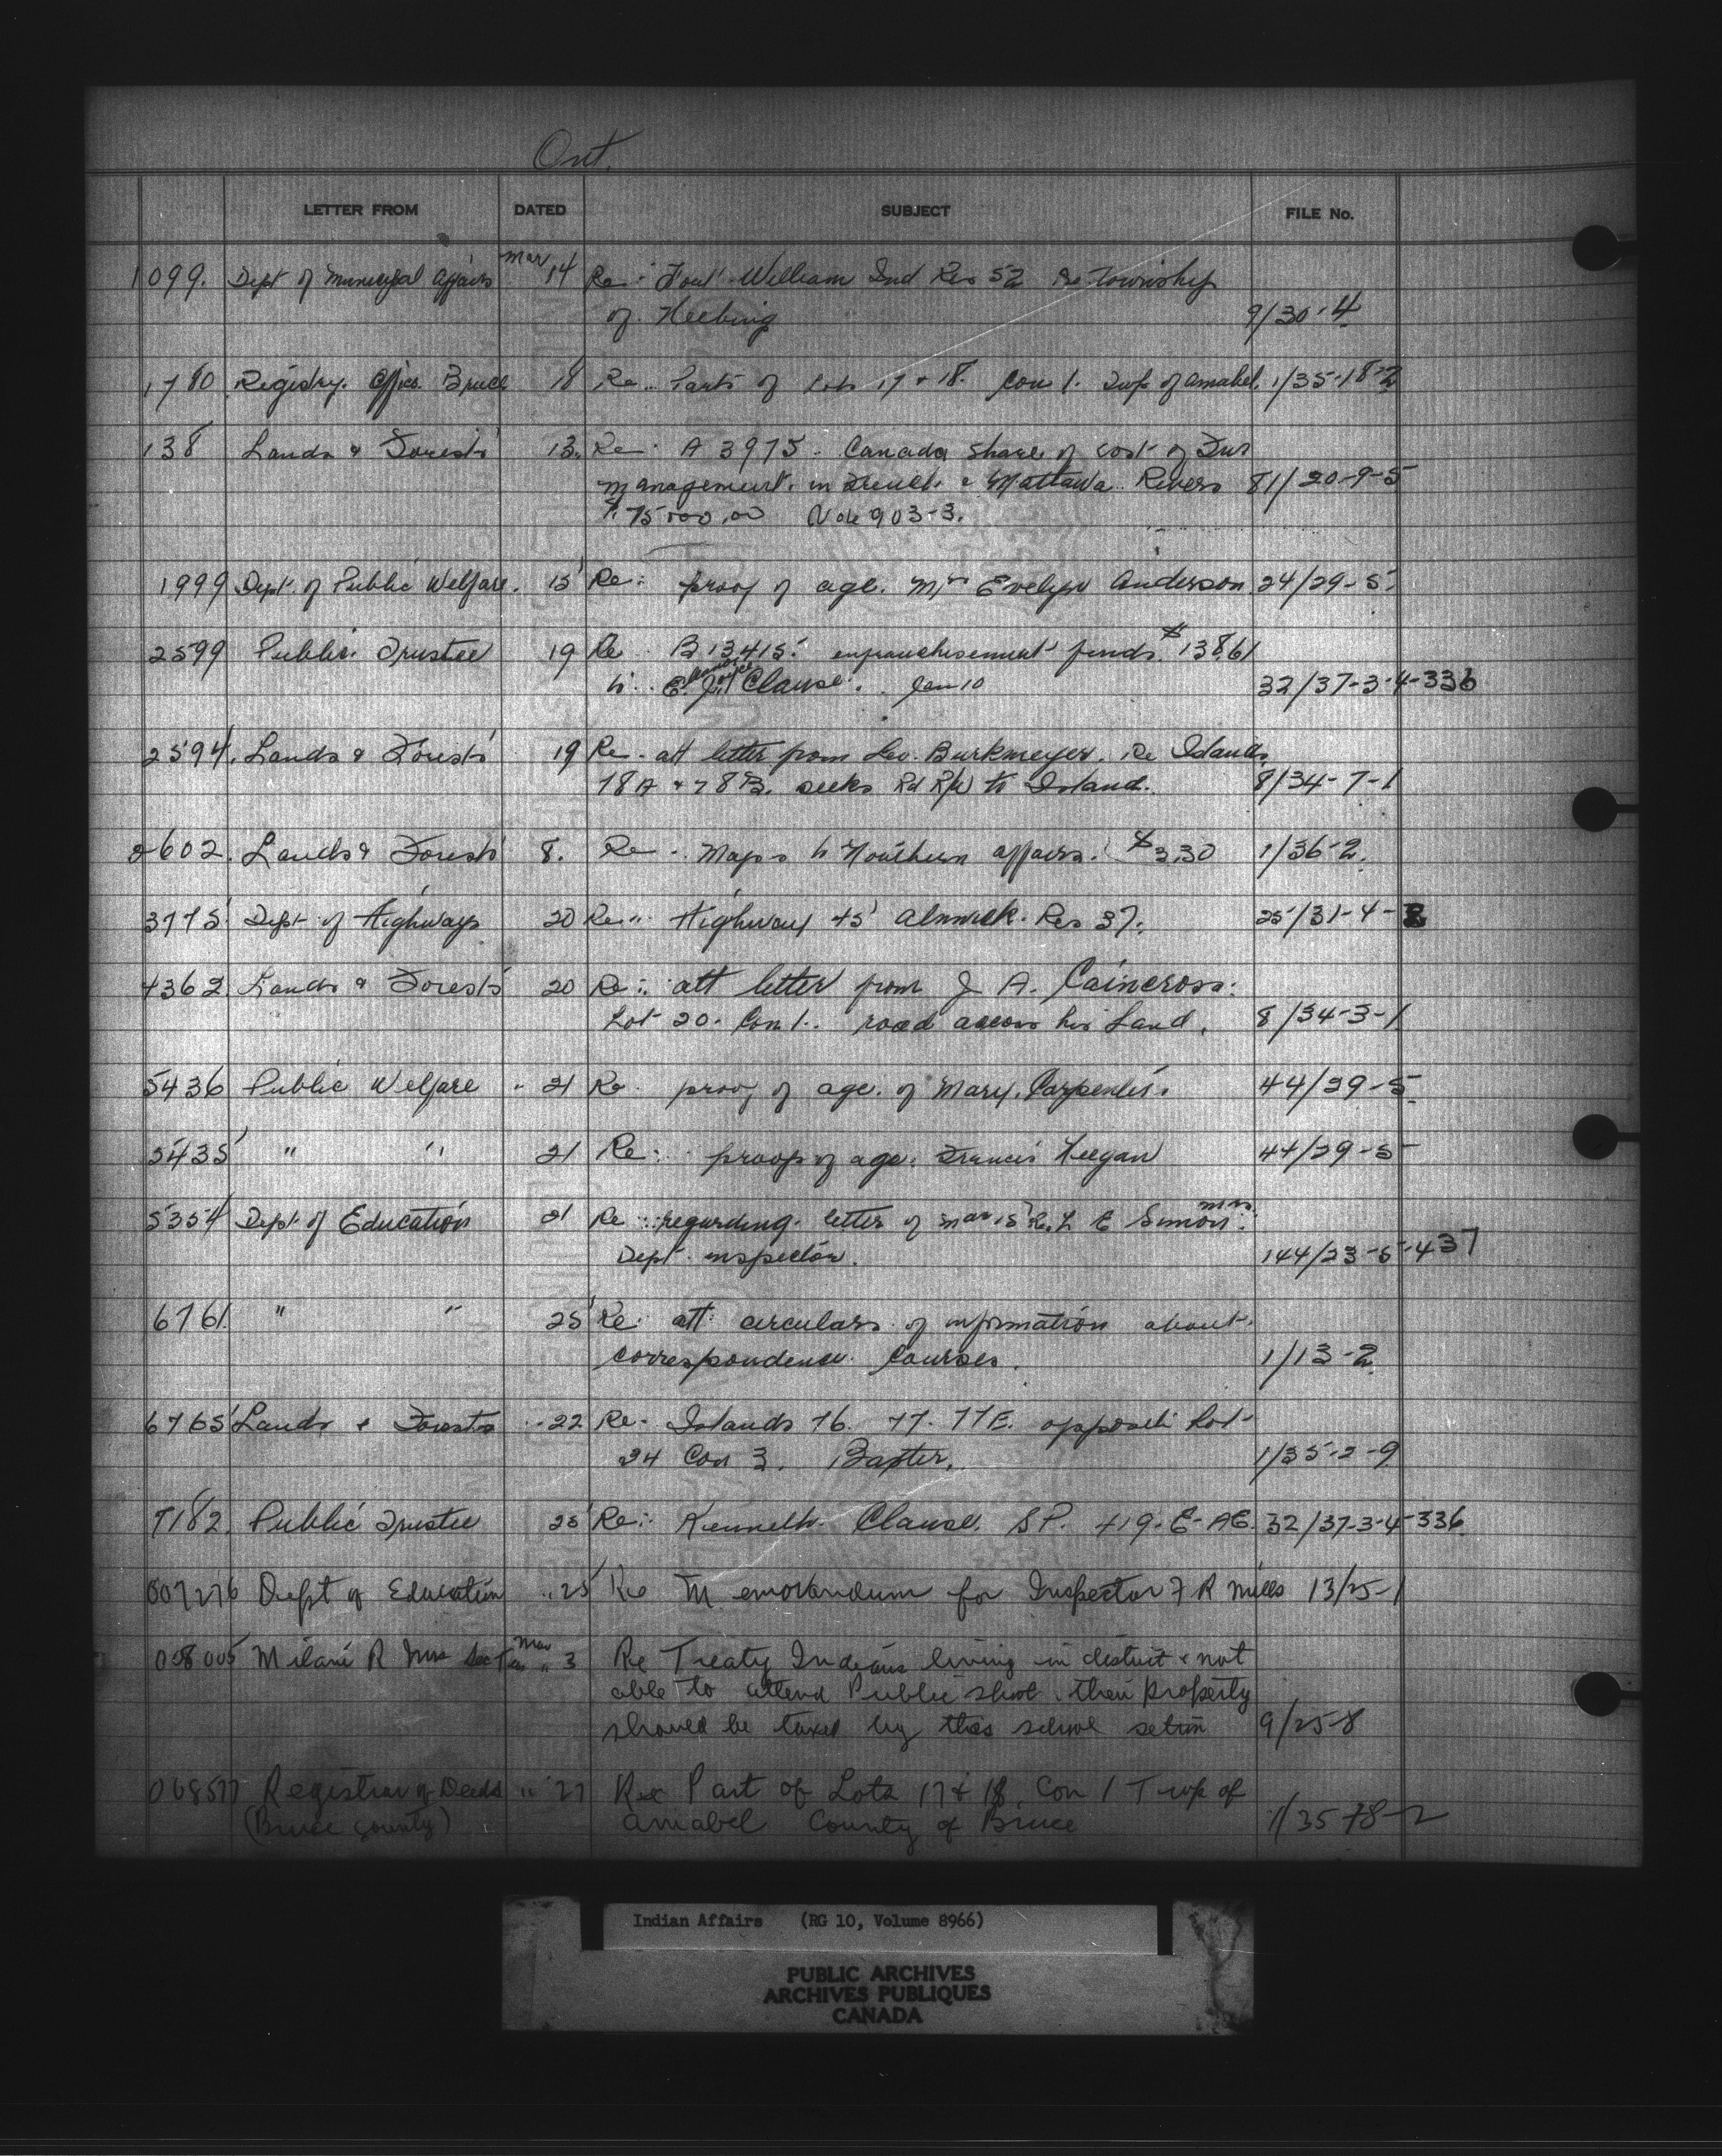 Ont.
LETTER FROM DATED SUBJECT FILE No.
1099. Dept of Municipal Affairs Mar 14 Re: Fort William Ind Res 52 Re Township
of Neebing 9/30-4
1780 Registry Office Bruce 18 Re.. Parts of Lots 17 & 18. Con 1. Twp of Amabel. 1/35-18-2
138 Lands & Forests 13. Re. A 3975. Canada share of cost of Fur
management. in French & Mattawa Rivers 81/20-9-5
$75000.00 Vote 903-3.
1999 Dept. of Public Welfare. 15 Re: proof of age. Mrs Evelyn Anderson 24/29-5.
2599 Public Trustee 19 Re. B 13415. enfranchisement funds. $138.61
to.. Joyce Clause. Jan 10 32/37-3-4-336
2594. Lands & Forests 19 Re. att letter from Leo. Burkmeyer. Re Islands
78A & 78B. seeks Rd R/W to Island. 8/34-7-1
2602. Lands & Forests 8. Re.. Maps to Northern Affairs. $3.30 1/36-2.
3775 Dept. of Highways 20 Re.. Highway 45 Alnwick. Res 37. 25/31-4-
4362. Lands & Forests 20 Re:. att letter from J A. Caincross:
Lot 20. Con 1.. road across his Land. 8/34-3-1
5436 Public Welfare " 21 Re. proof of age. of Mary. Carpenter. 44/29-5.
5435 " " 21 Re:. proof of age. Francis Keegan 44/29-5
5354 Dept. of Education 21 Re... regarding. letter of Mar 15 Re. L E Simon. Mrs.
Dept. inspector. 144/23-5-437
6761. " " 25 Re: att: circulars of information about.
correspondence. Courses. 1/13-2
6765 Lands & Forests ..22 Re. Islands 76. 77. 77E. opposite Lot
24 Con 3. Baxter. 1/35-2-9
7182. Public Trustee 25 Re:. Kenneth. Clause. S.P. 419-E-AE. 32/37-3-4-336
007276 Dept of Education ..25 Re Memorandum for Inspector F R Mills 13/25-1
008005 Milani R Mrs Sec Mar .. 3 Re Treaty Indians living in district & not
able to attend Public shool. their property
should be taxed by this school setion 9/25-8
008577 Registrar of Deeds " 27 Re Part of Lots 17 & 18, Con 1 Twp of
(Bruce County) Amabel County of Bruce 1/35-18-2
Indian Affairs (RG 10, Volume 8966)
PUBLIC ARCHIVES
ARCHIVES PUBLIQUES
CANADA